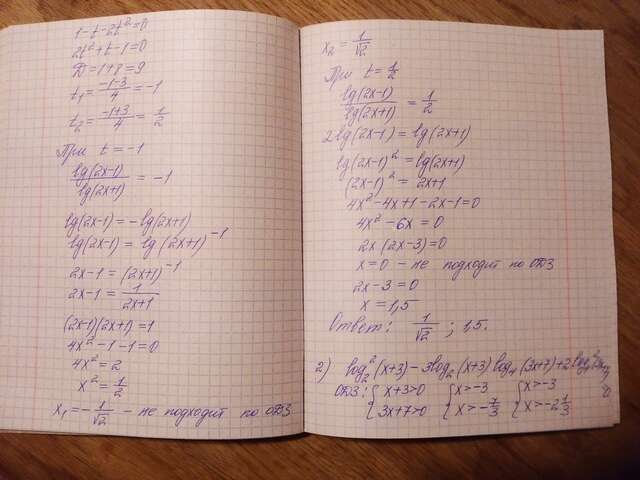 1-t-2t²=0
2t²+t-1=0
D=1+8=9
t₁=(-1-3)/4=-1
t₂=(-1+3)/4=1/2
При t=-1
lg(2x-1)/lg(2x+1)=-1
lg(2x-1)=-lg(2x+1)
lg(2x-1)=lg(2x+1)⁻¹
2x-1=(2x+1)⁻¹
2x-1=1/(2x+1)
(2x-1)(2x+1)=1
4x²-1-1=0
4x²=2
x²=1/2
x₁=-1/√2 - не подходит по ОДЗ
x₂=1/√2
При t=1/2
lg(2x-1)/lg(2x+1)=1/2
2lg(2x-1)=lg(2x+1)
lg(2x-1)²=lg(2x+1)
(2x-1)²=2x+1
4x²-4x+1-2x-1=0
4x²-6x=0
2x(2x-3)=0
x=0 - не подходит по ОДЗ
2x-3=0
x=1,5
Ответ: 1/√2; 1,5.
2) log₂²(x+3)-3log₂(x+3)log₄(3x+7)+2
ОДЗ: {x+3>0 {x>-3 {x>-3
{3x+7>0 {x>-7/3 {x>-2 1/3